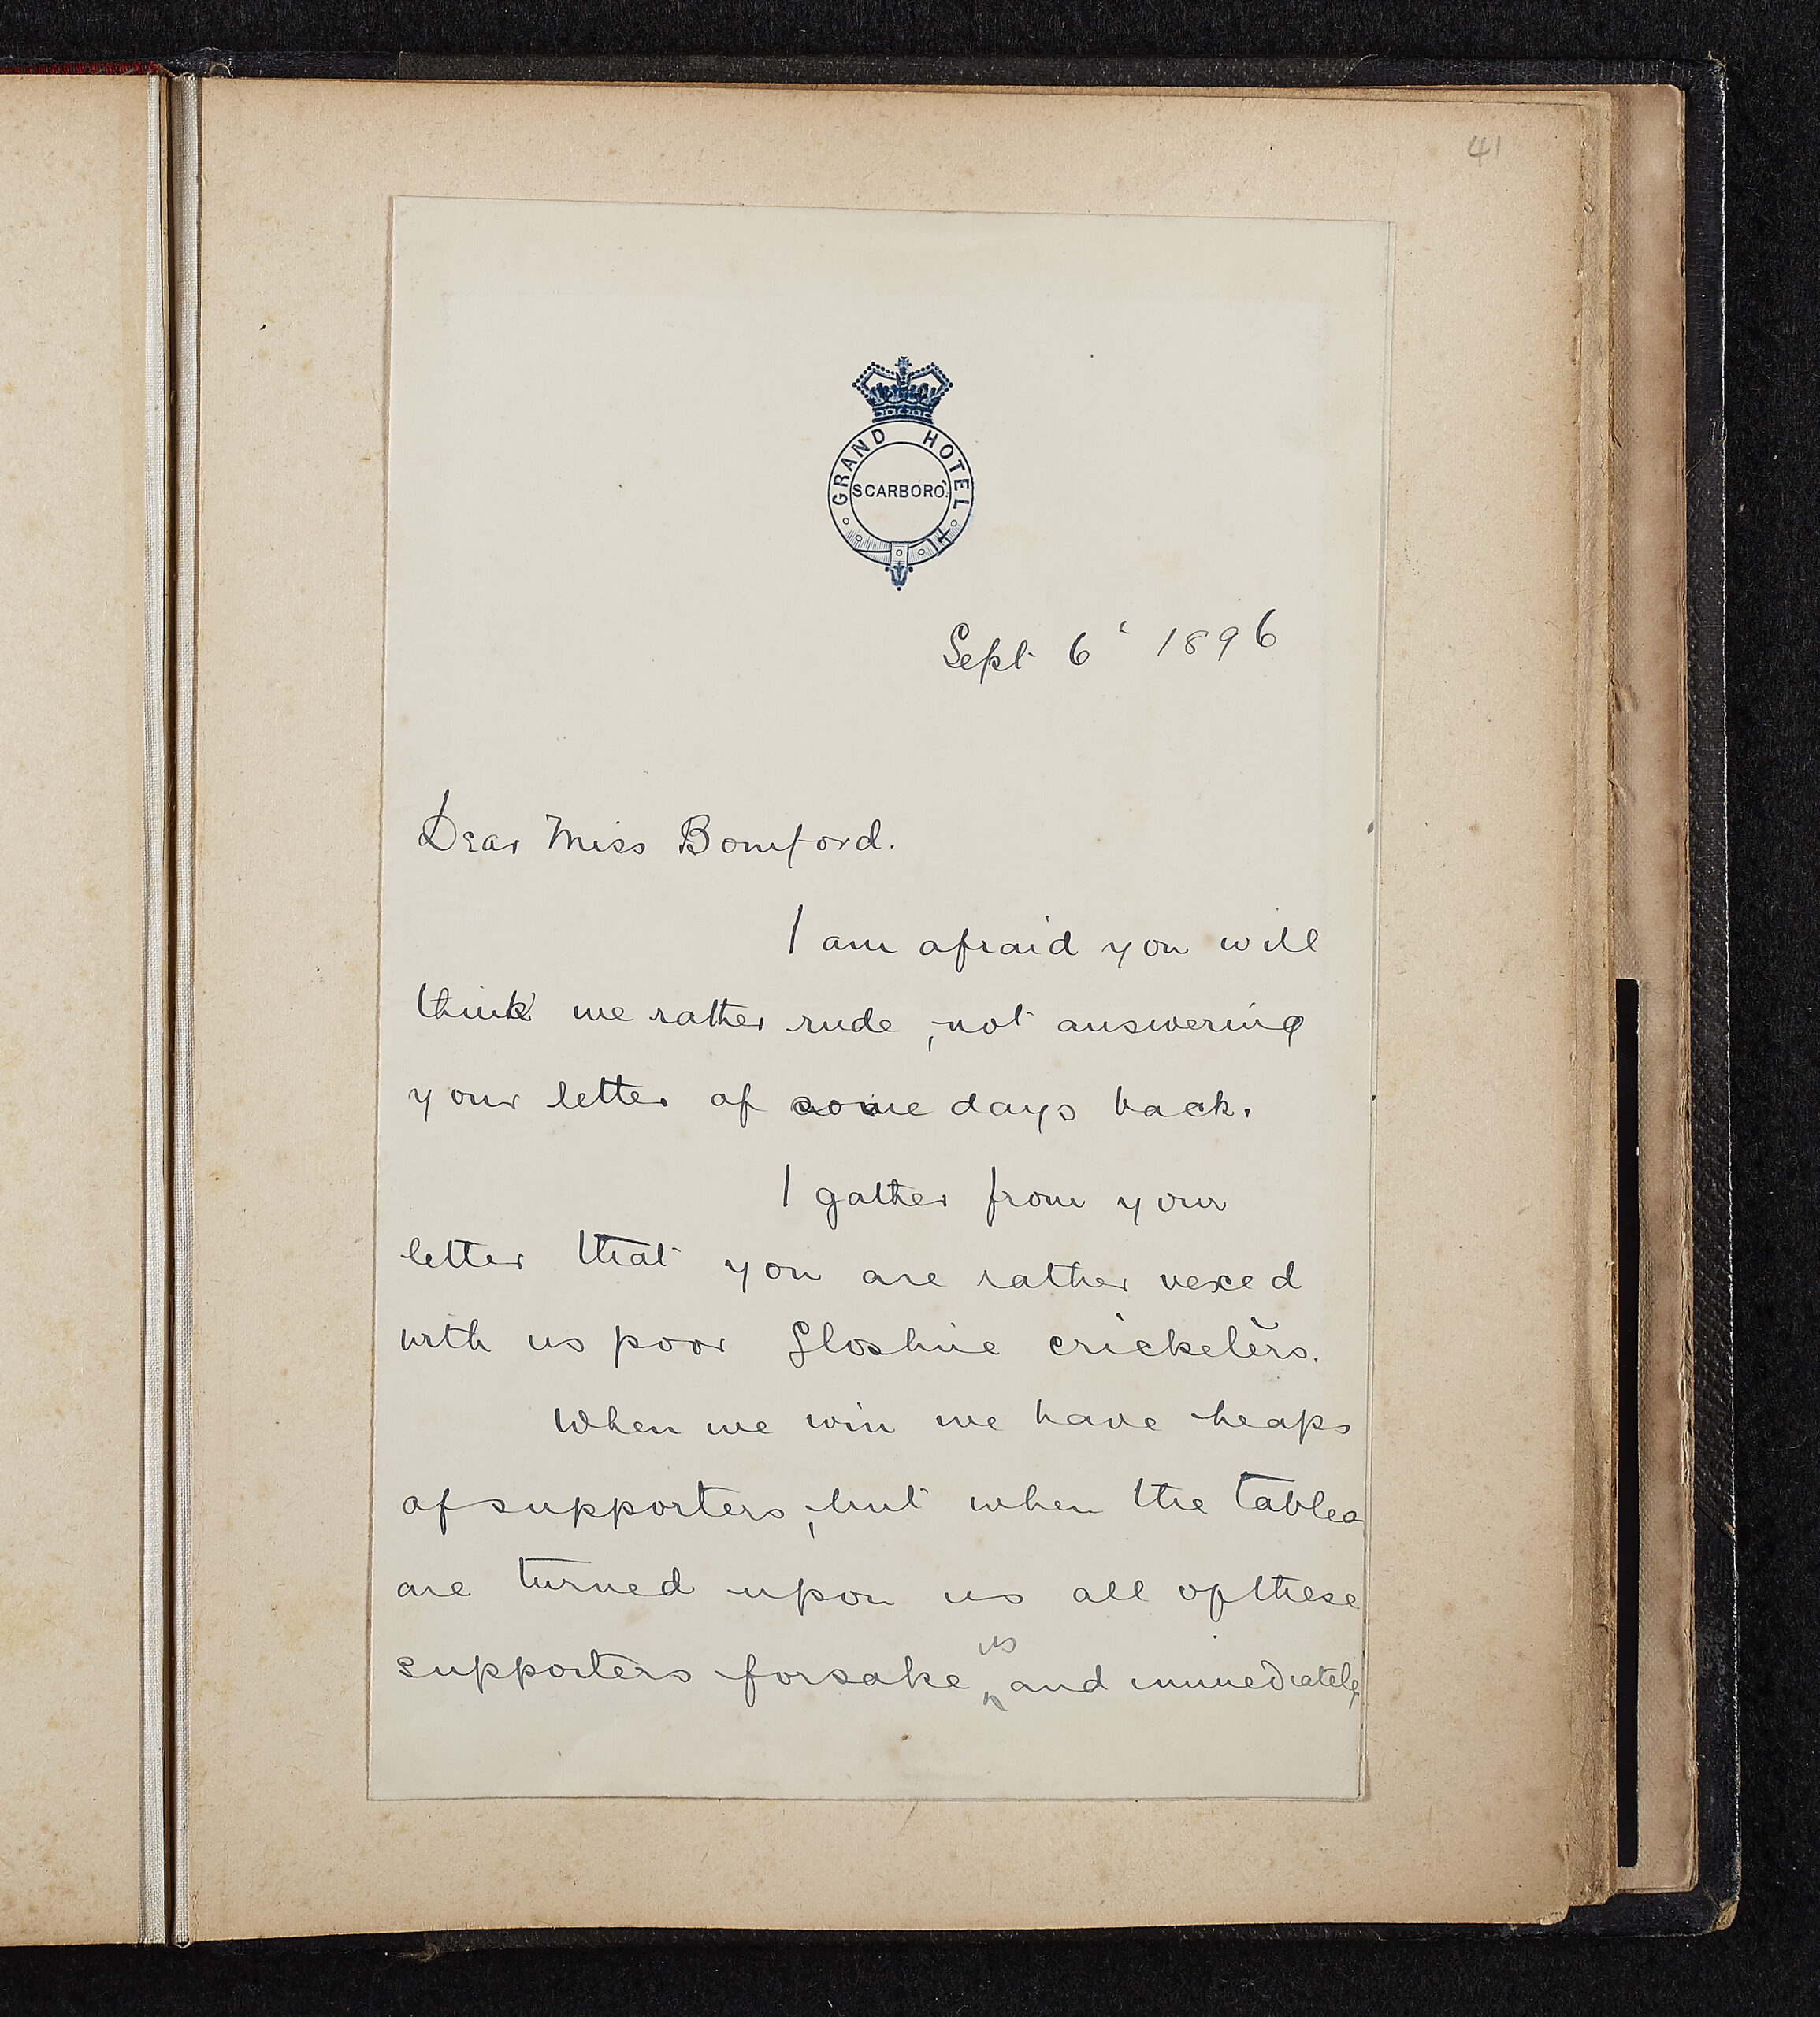 41
GRAND HOTEL
SCARBORO'.
Sept 6' 1896
Dear Miss Bomford.
I am afraid you will
think me rather rude, not answering
your letter of some days back.
I gather from your
letter that you are rather vexed
with us poor Gloshire cricketers.
When we win we have heaps
of supporters, but when the tables
are turned upon us all of these
supporters forsake us and immediately